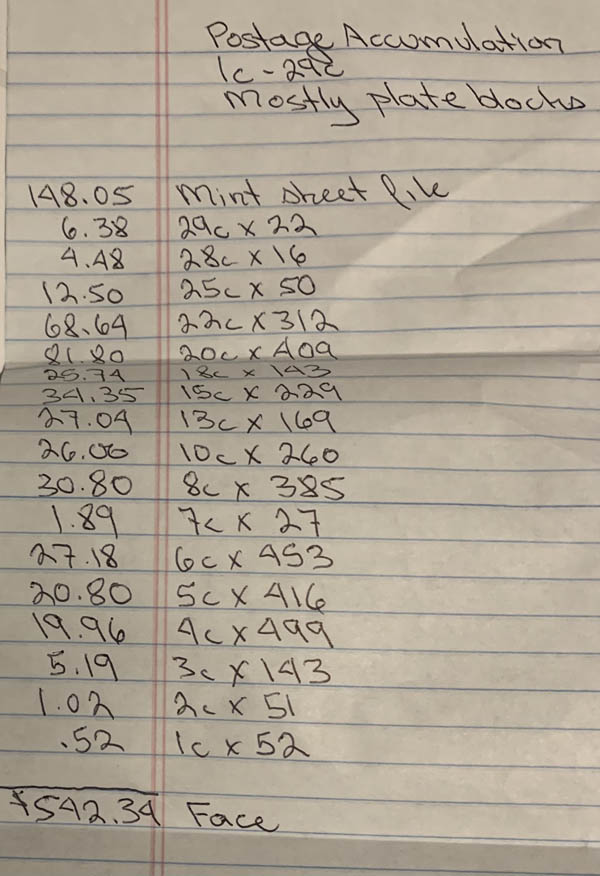 Postage Accumulation
1c - 29c
Mostly plate blocks
148.05 Mint sheet file
6.38 29c x 22
4.48 28c x 16
12.50 25c x 50
68.64 22c x 312
81.80 20c x 409
25.74 18c x 143
34.35 15c x 229
27.04 13c x 169
26.00 10c x 260
30.80 8c x 385
1.89 7c x 27
27.18 6c x 453
20.80 5c x 416
19.96 4c x 499
5.19 3c x 143
1.02 2c x 51
.52 1c x 52
$542.34 Face